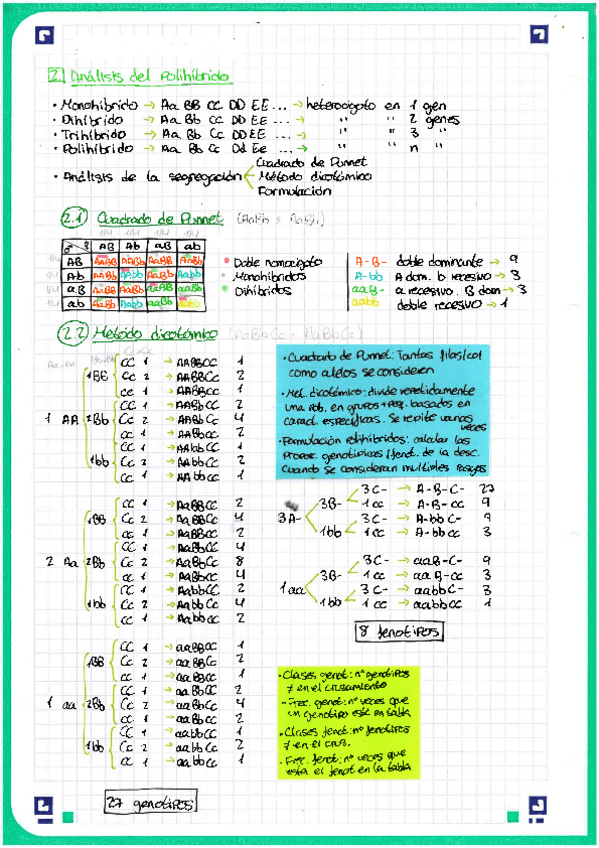 2 Análisis del Polihíbrido
· Monohíbrido → Aa BB CC DD EE ... → heterocigoto en 1 gen
· Dihíbrido → Aa Bb CC DD EE ... → " " 2 genes
· Trihíbrido → Aa Bb Cc DD EE ... → " " 3 "
· Polihíbrido → Aa Bb Cc Dd Ee ... → " " n "
Cuadrado de Punnet
· Análisis de la segregación Método dicotómico
Formulación
2.1 Cuadrado de Punnet (AaBb x AaBb)
♂ ♀ AB Ab aB ab
AB AABB AABb AaBB AaBb
Ab AABb AAbb AaBb Aabb
aB AaBB AaBb aaBB aaBb
ab AaBb Aabb aaBb aabb
Doble homocigoto
Monohíbridos
Dihíbridos
A-B- doble dominante → 9
A-bb A dom. b recesivo → 3
aaB- a recesivo. B dom → 3
aabb doble recesivo → 1
2.2 Método dicotómico (AaBbCc x AaBbCc)
CC 1 → AABBCC 1
1BB Cc 2 → AABBCc 2
cc 1 → AABBcc 1
CC 1 → AABbCC 2
1 AA 2Bb Cc 2 → AABbCc 4
cc 1 → AABbcc 2
CC 1 → AAbbCC 1
1bb Cc 2 → AAbbCc 2
cc 1 → AAbbcc 1
· Cuadrado de Punnet: Tantas filas/col
como alelos se consideren
· Met. dicotómico: divide repetidamente
una pob. en grupos + peq. basados en
caract. específicas. Se repite varias
veces
· Formulación polihíbridos: calcular las
propor. genotípicas/fenot. de la desc.
cuando se consideran multiples rasgos
CC 1 → AaBBCC 2
1BB Cc 2 → AaBBCc 4
cc 1 → AaBBcc 2
CC 1 → AaBbCC 4
2 Aa 2Bb Cc 2 → AaBbCc 8
cc 1 → AaBbcc 4
CC 1 → AabbCC 2
1bb Cc 2 → AabbCc 4
cc 1 → Aabbcc 2
3A- 3B- 3C- → A-B-C- 27
1cc → A-B-cc 9
1bb 3C- → A-bbC- 9
1cc → A-bbcc 3
1aa 3B- 3C- → aaB-C- 9
1cc → aaB-cc 3
1bb 3C- → aabbC- 3
1cc → aabbcc 1
8 fenotipos
CC 1 → aaBBCC 1
1BB Cc 2 → aaBBCc 2
cc 1 → aaBBcc 1
CC 1 → aaBbCC 2
1 aa 2Bb Cc 2 → aaBbCc 4
cc 1 → aaBbcc 2
CC 1 → aabbCC 1
1bb Cc 2 → aabbCc 2
cc 1 → aabbcc 1
27 genotipos
· Clases genot: nº genotipos
≠ en el cruzamiento
- Frec. genot: nº veces que
un genotipo esté en tabla
· Clases fenot: nº fenotipos
≠ en el cruz.
· Frec. fenot: nº veces que
está el fenot en la tabla